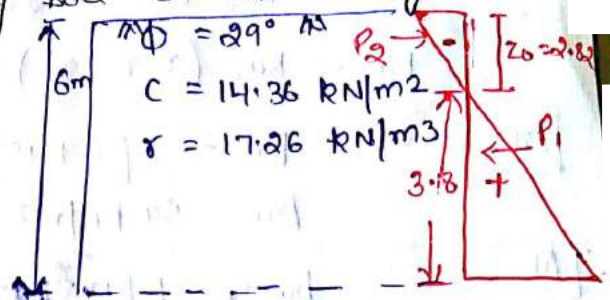 ϕ = 29°
6m
C = 14.36 KN/m2
γ = 17.26 KN/m3
P2
-
Z0 = 2.82
P1
3.18
+